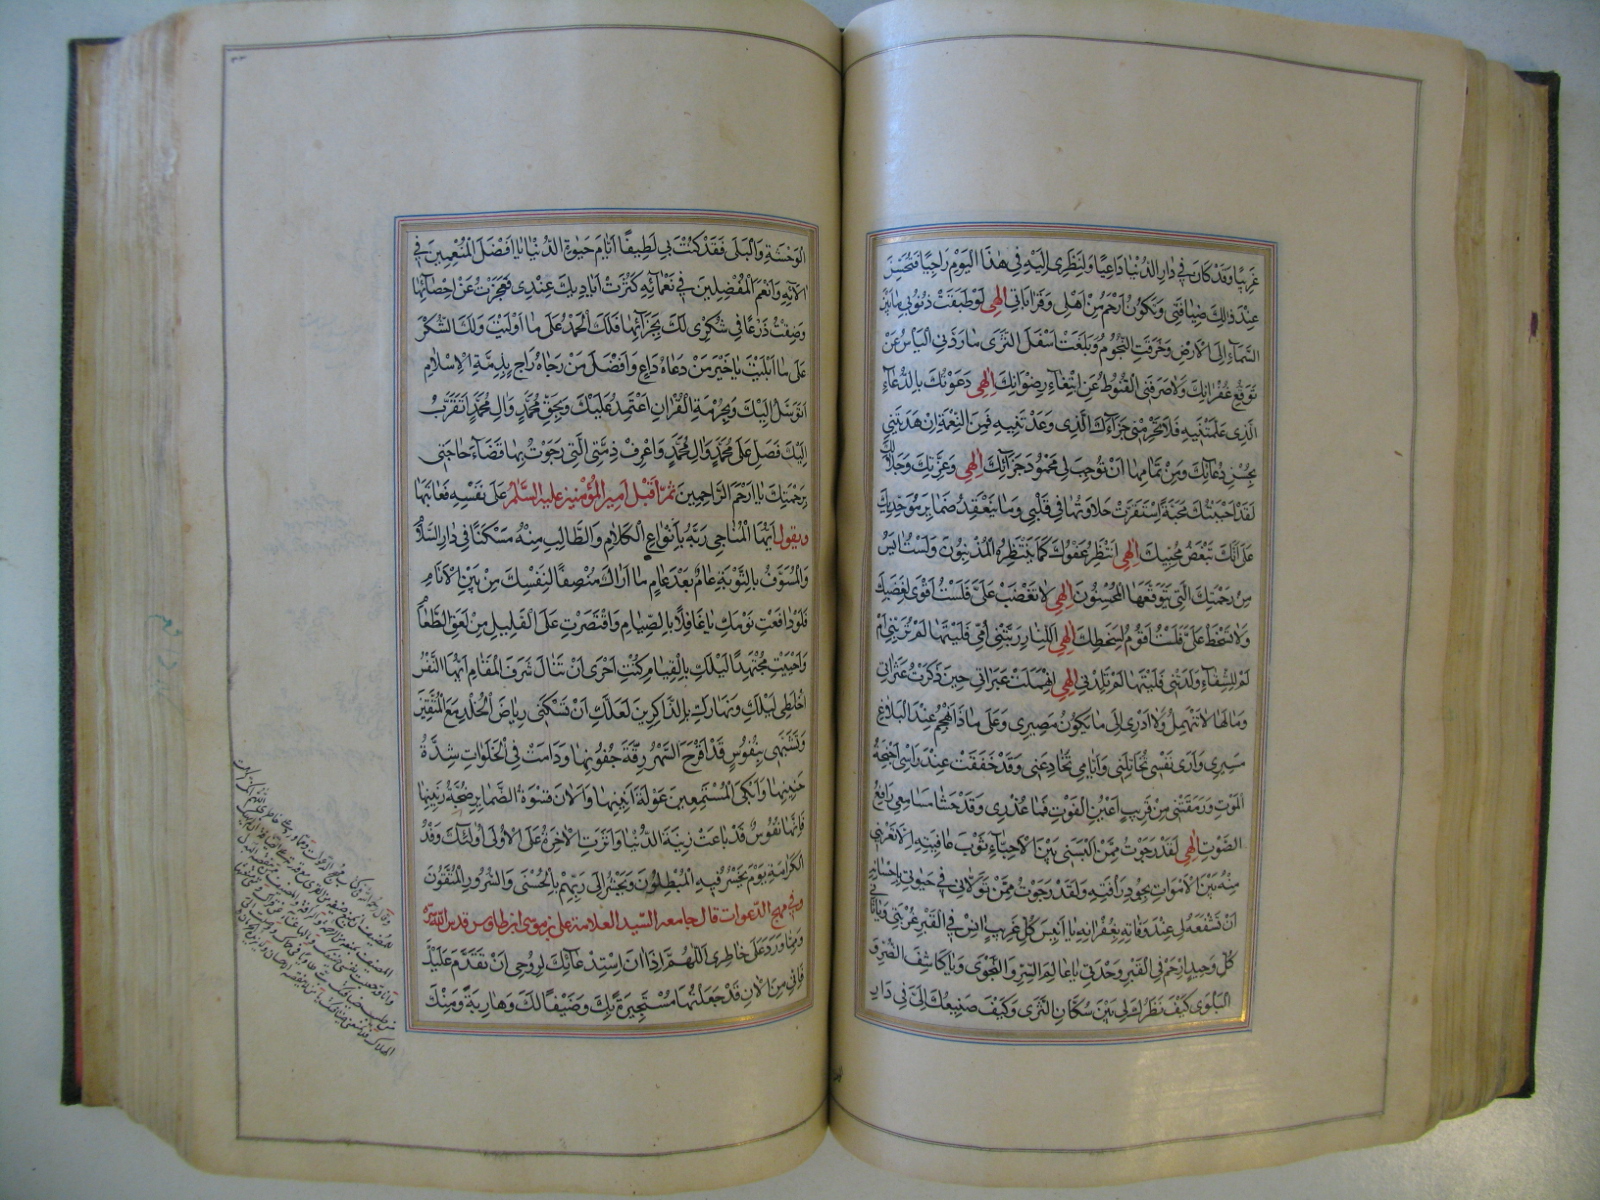 غَرِيبًا وَقَدْ كَانَ فِي دَارِ الدُّنْيَا دَاعِيًا وَلِنَظَرِي إِلَيْهِ فِي هٰذَا الْيَوْمِ رَاجِيًا فَتُحْسِنَ
عِنْدَ ذٰلِكَ ضِيَافَتِي وَتَكُونُ أَرْحَمَ مِنْ أَهْلِي وَقَرَابَاتِي إِلٰهِي لَوْ طَبَّقَتْ ذُنُوبِي مَا بَيْنَ
السَّمَاءِ إِلَى الْأَرْضِ وَخَرَقَتِ النُّجُومَ وَبَلَغَتْ أَسْفَلَ الثَّرَى مَا رَدَّنِي الْيَأْسُ عَنْ
تَوَقُّعِ غُفْرَانِكَ وَلَا صَرَفَنِي الْقُنُوطُ عَنِ ابْتِغَاءِ رِضْوَانِكَ إِلٰهِي دَعَوْتُكَ بِالدُّعَاءِ
الَّذِي عَلَّمْتَنِيهِ فَلَا تَحْرِمْنِي جَزَاءَكَ الَّذِي وَعَدْتَنِيهِ فَمِنَ النِّعْمَةِ أَنْ هَدَيْتَنِي
بِحُسْنِ دُعَائِكَ وَمِنْ تَمَامِهَا أَنْ تُوجِبَ لِي مَحْمُودَ جَزَائِكَ إِلٰهِي وَعِزَّتِكَ وَجَلَالِكَ
لَقَدْ أَحْبَبْتُكَ مَحَبَّةً اسْتَقَرَّتْ حَلَاوَتُهَا فِي قَلْبِي وَمَا يَنْعَقِدُ ضَمَايِرُ مُوَحِّدِيكَ
عَلَى أَنَّكَ تُبْغِضُ مُحِبِّيكَ إِلٰهِي أَنْتَظِرُ عَفْوَكَ كَمَا يَنْتَظِرُهُ الْمُذْنِبُونَ وَلَسْتُ أَيْأَسُ
مِنْ رَحْمَتِكَ الَّتِي يَتَوَقَّعُهَا الْمُحْسِنُونَ إِلٰهِي لَا تَغْضَبْ عَلَيَّ فَلَسْتُ أَقْوَى لِغَضَبِكَ
وَلَا تَسْخَطْ عَلَيَّ فَلَسْتُ أَقُومُ لِسَخَطِكَ إِلٰهِي أَلِلنَّارِ رَبَّتْنِي أُمِّي فَلَيْتَهَا لَمْ تُرَبِّنِي أَمْ
لَمْ لِلشَّقَاءِ وَلَدَتْنِي فَلَيْتَهَا لَمْ تَلِدْنِي إِلٰهِي انْهَمَلَتْ عَبَرَاتِي حِينَ ذَكَرْتُ عَثَرَاتِي
وَمَا لَهَا لَا تَنْهَمِلُ وَلَا أَدْرِي إِلَى مَا يَكُونُ مَصِيرِي وَعَلَى مَاذَا يَهْجُمُ عِنْدَ الْبَلَاغِ
مَسِيرِي وَأَرَى نَفْسِي تُخَاتِلُنِي وَأَيَّامِي تُخَادِعُنِي وَقَدْ خَفَقَتْ عِنْدَ رَأْسِي أَجْنِحَةُ
الْمَوْتِ وَرَمَقَتْنِي مِنْ قَرِيبٍ أَعْيُنُ الْفَوْتِ فَمَا عُذْرِي وَقَدْ حَشَا مَسَامِعِي رَافِعُ
الصَّوْتِ إِلٰهِي لَقَدْ رَجَوْتُ مِمَّنْ أَلْبَسَنِي بَيْنَ الْأَحْيَاءِ ثَوْبَ عَافِيَتِهِ أَلَّا يُعْرِيَنِي
مِنْهُ بَيْنَ الْأَمْوَاتِ بِجُودِ رَأْفَتِهِ وَلَقَدْ رَجَوْتُ مِمَّنْ تَوَلَّانِي فِي حَيٰوتِي بِإِحْسَانِهِ
أَنْ تَشْفَعَهُ لِي عِنْدَ وَفَاتِي بِغُفْرَانِهِ يَا أَنِيسَ كُلِّ غَرِيبٍ آنِسْ فِي الْقَبْرِ غُرْبَتِي وَيَا ثَانِيَ
كُلِّ وَحِيدٍ ارْحَمْ فِي الْقَبْرِ وَحْدَتِي يَا عَالِمَ السِّرِّ وَالنَّجْوَى وَيَا كَاشِفَ الضُّرِّ وَ
الْبَلْوَى كَيْفَ نَظَرُكَ لِي بَيْنَ سُكَّانِ الثَّرَى وَكَيْفَ صَنِيعُكَ إِلَيَّ فِي دَارِ
الْوَحْشَةِ وَالْبَلَى فَقَدْ كُنْتَ بِي لَطِيفًا أَيَّامَ حَيٰوةِ الدُّنْيَا يَا أَفْضَلَ الْمُنْعِمِينَ فِي
آلَائِهِ وَأَنْعَمَ الْمُفْضِلِينَ فِي نَعْمَائِهِ كَثُرَتْ أَيَادِيكَ عِنْدِي فَعَجَزْتُ عَنْ إِحْصَائِهَا
وَضِقْتُ ذَرْعًا فِي شُكْرِي لَكَ بِجَزَائِهَا فَلَكَ الْحَمْدُ عَلَى مَا أَوْلَيْتَ وَلَكَ الشُّكْرُ
عَلَى مَا أَبْلَيْتَ يَا خَيْرَ مَنْ دَعَاهُ دَاعٍ وَأَفْضَلَ مَنْ رَجَاهُ رَاجٍ بِذِمَّةِ الْإِسْلَامِ
أَتَوَسَّلُ إِلَيْكَ وَبِحُرْمَةِ الْقُرْآنِ أَعْتَمِدُ عَلَيْكَ وَبِحَقِّ مُحَمَّدٍ وَآلِ مُحَمَّدٍ أَتَقَرَّبُ
إِلَيْكَ فَصَلِّ عَلَى مُحَمَّدٍ وَآلِ مُحَمَّدٍ وَاعْرِفْ ذِمَّتِيَ الَّتِي رَجَوْتُ بِهَا قَضَاءَ حَاجَتِي
بِرَحْمَتِكَ يَا أَرْحَمَ الرَّاحِمِينَ ثُمَّ أَقْبَلَ أَمِيرُ الْمُؤْمِنِينَ عَلَيْهِ السَّلَامُ عَلَى نَفْسِهِ فَعَاتَبَهَا
وَيَقُولُ أَيُّهَا الْمُنَاجِي رَبَّهُ بِأَنْوَاعِ الْكَلَامِ وَالطَّالِبُ مِنْهُ مَسْكَنًا فِي دَارِ السَّلَامِ
وَالْمُسَوِّفُ بِالتَّوْبَةِ عَامٌ بَعْدَ عَامٍ مَا أَرَاكَ مُنْصِفًا لِنَفْسِكَ مِنْ بَيْنِ الْأَنَامِ
فَلَوْ دَافَعْتَ نَوْمَكَ يَا غَافِلًا بِالصِّيَامِ وَاقْتَصَرْتَ عَلَى الْقَلِيلِ مِنْ لَعْقِ الطَّعَامِ
وَأَحْيَيْتَ مُجْتَهِدًا لَيْلَكَ بِالْقِيَامِ كُنْتَ أَحْرَى أَنْ تَنَالَ شَرَفَ الْمَقَامِ أَيَّتُهَا النَّفْسُ
اخْلِطِي لَيْلَكِ وَنَهَارَكِ بِالذَّاكِرِينَ لَعَلَّكِ أَنْ تَسْكُنِي رِيَاضَ الْخُلْدِ مَعَ الْمُتَّقِينَ
وَتَشَبَّهِي بِنُفُوسٍ قَدْ أَقْرَحَ السَّهَرُ رِقَّةَ جُفُونِهَا وَدَامَتْ فِي الْخَلَوَاتِ شِدَّةُ
حَنِينِهَا وَأَبْكَى الْمُسْتَمِعِينَ عَوْلَةُ أَنِينِهَا وَأَلَانَ قَسْوَةَ الضَّمَايِرِ ضَجَّةُ رَنِينِهَا
فَإِنَّهَا نُفُوسٌ قَدْ بَاعَتْ زِينَةَ الدُّنْيَا وَآثَرَتِ الْآخِرَةَ عَلَى الْأُولَى أُولٰئِكَ وَفْدُ
الْكَرَامَةِ يَوْمَ يَخْسَرُ فِيهِ الْمُبْطِلُونَ وَيُحْشَرُ إِلَى رَبِّهِمْ بِالْحُسْنَى وَالسُّرُورِ الْمُتَّقُونَ
وَفِي مهج الدعوات قال جامعه السيد العلامة علي بن موسى ابن طاوس قدس الله سره
وَمِمَّا وَرَدَ عَلَى خَاطِرِي اللّٰهُمَّ إِذَا أَنَّ اسْتِدْعَائَكَ لِرُوحِي أَنْ تَقْدَمَ عَلَيْكَ
فَإِنِّي مِنَ الْآنِ قَدْ جَعَلْتُهَا مُسْتَجِيرَةً بِكَ وَضَيْفًا لَكَ وَهَارِبَةً وَمِنْكَ